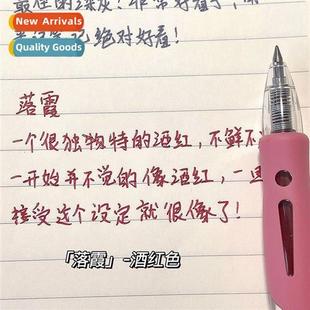 New Arrivals
Quality Goods
最佳的深灰!非常好看了,
笔记绝对好看!
落霞
一个很独物特的酒红,不鲜不
一开始并不觉的像酒红,一旦
接受这个设定就很像了!
「落霞」-酒红色